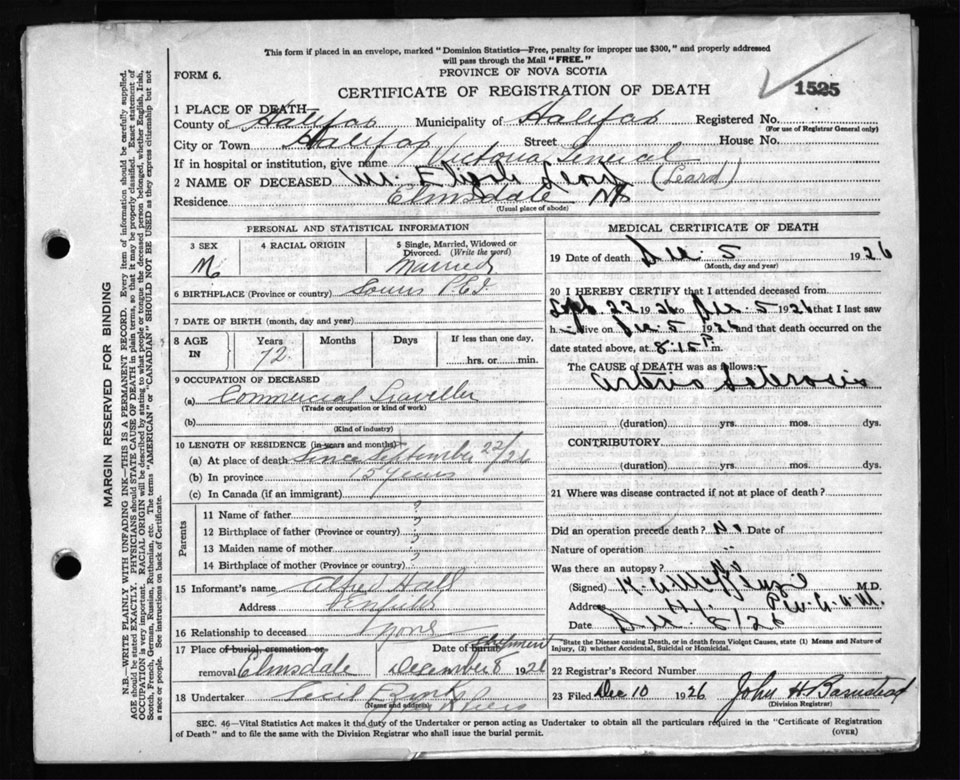 This form if placed in an envelope, marked "Dominion Statistics—Free, penalty for improper use $300," and properly addressed
will pass through the Mail "FREE."
PROVINCE OF NOVA SCOTIA
FORM 6.
CERTIFICATE OF REGISTRATION OF DEATH
1525
1 PLACE OF DEATH
County of Halifax Municipality of Halifax Registered No.
(For use of Registrar General only)
City or Town Halifax Street House No.
If in hospital or institution, give name Victoria General
2 NAME OF DECEASED (Leard)
Residence Elmsdale NS
(Usual place of abode)
PERSONAL AND STATISTICAL INFORMATION
3 SEX
M
4 RACIAL ORIGIN
5 Single, Married, Widowed or
Divorced. (Write the word)
Married
6 BIRTHPLACE (Province or country) Souris P.E.I
7 DATE OF BIRTH (month, day and year)
8 AGE
IN
Years Months Days If less than one day.
72 hrs. or min.
9 OCCUPATION OF DECEASED
(a) Commercial Traveller
(Trade or occupation or kind of work)
(b)
(Kind of industry)
10 LENGTH OF RESIDENCE (in years and months)
(a) At place of death Since September 22/26
(b) In province years
(c) In Canada (if an immigrant)
Parents
11 Name of father ?
12 Birthplace of father (Province or country) ?
13 Maiden name of mother ?
14 Birthplace of mother (Province or country) ?
15 Informant's name Alfred Hall
Address
16 Relationship to deceased
17 Place of burial, cremation or Date of burial
removal Elmsdale December 8 1926
18 Undertaker
(Name and address)
MEDICAL CERTIFICATE OF DEATH
19 Date of death Dec. 5 1926
(Month, day and year)
20 I HEREBY CERTIFY that I attended deceased from
Sept 22 1926 to Dec. 5 1926 that I last saw
h alive on Dec. 5 1926 and that death occurred on
the date stated above, at 8.15 P m.
The CAUSE of DEATH was as follows:
Arterio Sclerosis
(duration) yrs. mos. dys.
CONTRIBUTORY
(duration) yrs. mos. dys.
21 Where was disease contracted if not at place of death?
Did an operation precede death? No Date of
Nature of operation "
Was there an autopsy? No
(Signed) M.D.
Address
Date
*State the Disease causing Death, or in death from Violent Causes, state (1) Means and Nature of
Injury, (2) whether Accidental, Suicidal or Homicidal.
22 Registrar's Record Number
23 Filed Dec 10 1926 John H Barnstead
(Division Registrar)
SEC. 46—Vital Statistics Act makes it the duty of the Undertaker or person acting as Undertaker to obtain all the particulars required in the "Certificate of Registration
of Death" and to file the same with the Division Registrar who shall issue the burial permit.
(OVER)
MARGIN RESERVED FOR BINDING
N.B.—WRITE PLAINLY WITH UNFADING INK—THIS IS A PERMANENT RECORD. Every item of information should be carefully supplied.
AGE should be stated EXACTLY. PHYSICIANS should STATE CAUSE OF DEATH in plain terms, so that it may be properly classified. Exact statement of
OCCUPATION is very important. RACIAL ORIGIN will be described by stating to what people or tongue the deceased person belonged, whether English, Irish,
Scotch, French, German, Russian, Ruthenian, etc. The terms "AMERICAN" or "CANADIAN" SHOULD NOT BE USED as they express citizenship but not
a race or people. See instructions on back of Certificate.